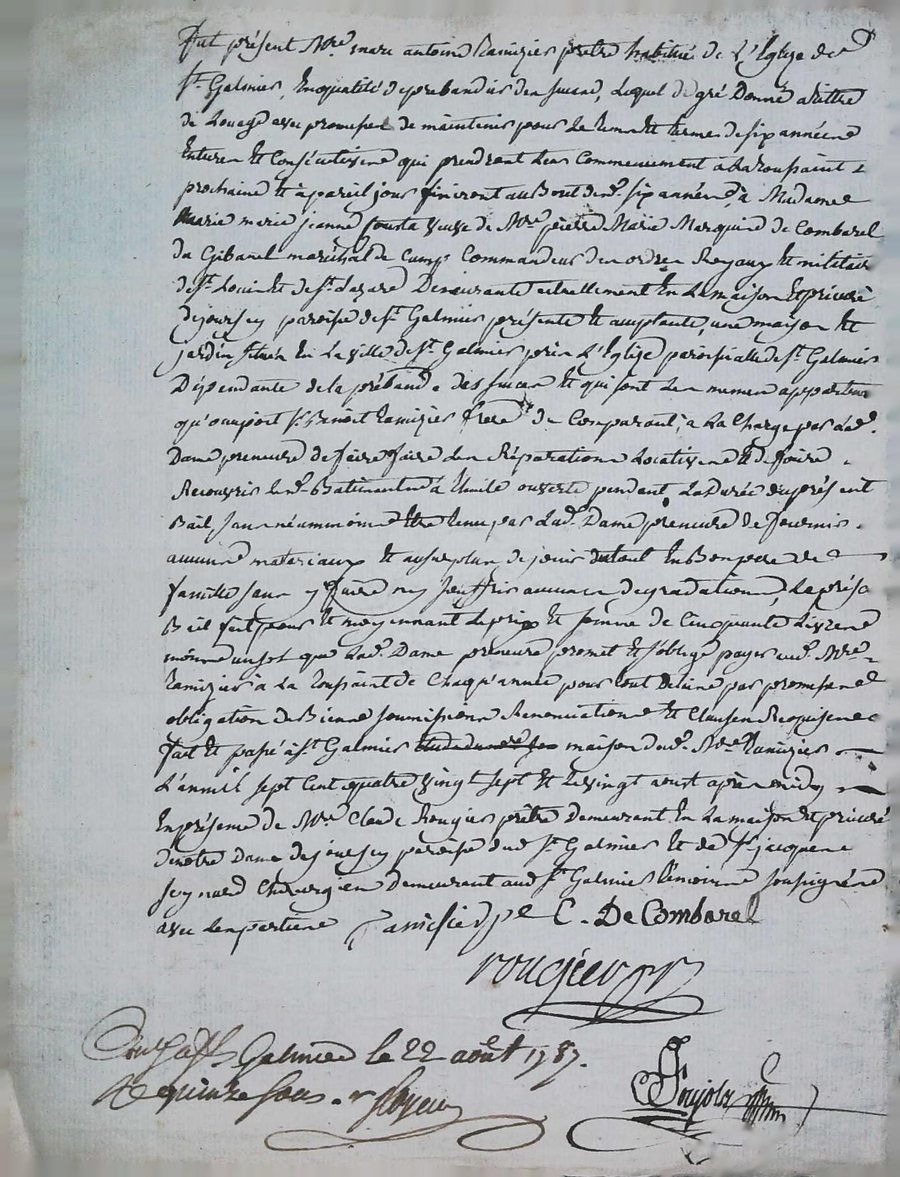 Fut présent Mre marc antoine Ramizier prêtre habitué de L'Eglise de
St Galmier, En qualité de prebandier des sucand, Lequel de gré Donne a titre
de Louage avec promesse de maintenir pour Le tems et terme de six années
Entieres Et Consécutives qui prendront Leur Commencement à la toussaint
prochaine Et à pareil jour finiront au Bout desd. six années, à Madame
marie jeanne Cousta veuve de Mre pierre Marie Marquis de Combarel
du Gibanel maréchal de Camp Commandeur des ordres Royaux Et militair
de St Louis Et de St Lazare Demeurante actuellement En La maison Et prieuré
de joursey paroisse de St Galmier présente Et acceptante, une maison Et
jardin situés En La ville de St Galmier près L'Eglise paroissialle de St Galmier
Dépendante de la prébande des sucan Et qui sont Les mêmes appartem
qu'occupoit Sr Benoit Ramizier frere du Comparant, à La Charge par Lad.
Dame preneuse de faire faire Les Réparations Locatives Et de faire
Recouvrir Lesd. Batiments à tuile ouverte pendant La Durée du présent
Bail sans néammoins Etre tenue par Lad. Dame preneuse de fournir
aucuns materiaux Et au surplus de jouir du tout En Bon pere de
famille sans y faire ny souffrir aucunes degradations, Le présent
Bail fait pour Et moyennant Le prix Et somme de Cinquante Livres
moins un sol que Lad. Dame preneuse promet Et s'oblige payer aud. Mre
Ramizier à La toussaint de Chaqu'année pour tout delais par promesse
obligation de Biens soumissions Renonciations Et Clauses Requises
fait Et passé à St Galmier maison dud. Mre Ramizier
L'an mil sept Cent quatre vingt sept Et Le vingt aoust après midy
En présence de Mre Claude Rougier prêtre Demeurant En La maison Et prieuré
de notre Dame de joursey paroisse dud St Galmier Et de Sr jacques
Chirurgien Demeurant aud St Galmier témoins soussignés
avec Les parties Ramisier pe C. De Combarel
rougier ptr
Con à St Galmier le 22 août 1787.
R quinze sous